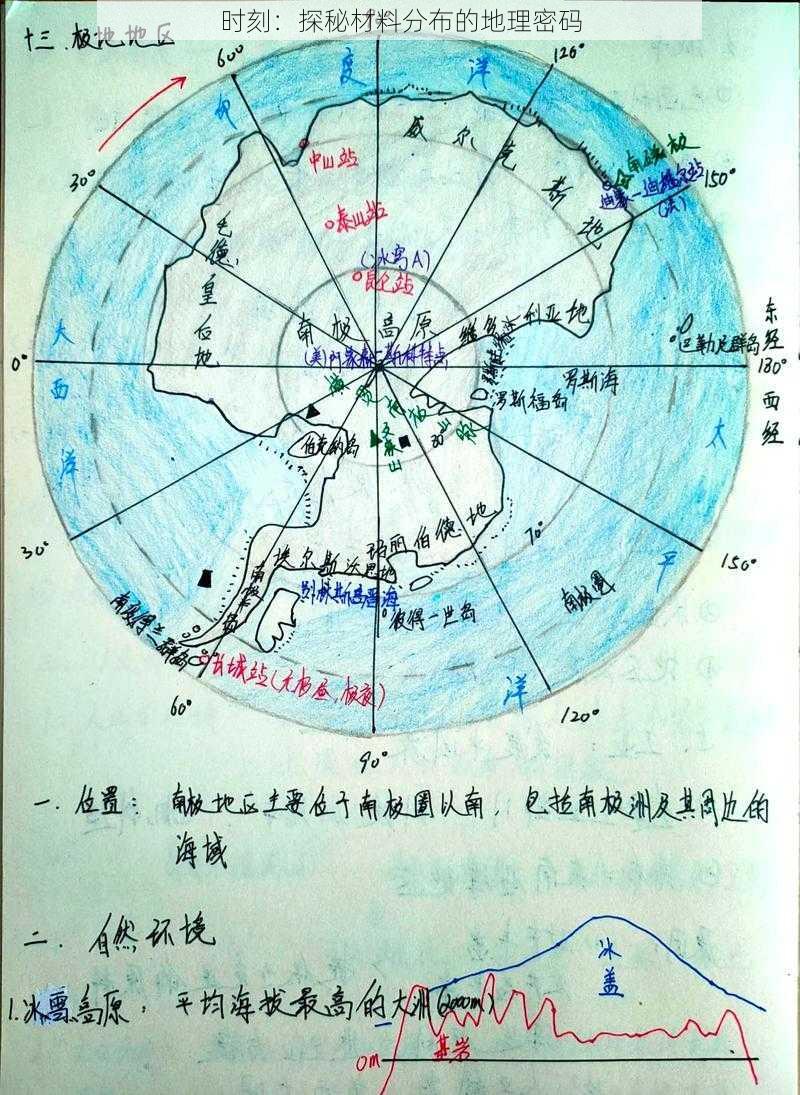 时刻：探秘材料分布的地理密码
十三.极地地区
60°
120°
印度洋
威尔克斯地
中山站
南磁极
30°
迪蒙-迪维尔站
150°
(法)
泰山站
毛德皇后地
(冰穹A)
昆仑站
南极高原
维多利亚地
东经
大西洋
0°
(美)阿蒙森-斯科特站
巴勒尼群岛
180°
罗斯海
西经
罗斯福岛
横贯南极山脉
文森山
80°
伯克纳岛
太平洋
玛丽伯德地
埃尔斯沃思地
70°
30°
150°
南极半岛
别林斯高晋海
南极圈
彼得一世岛
南设得兰群岛
长城站(无极昼,极夜)
60°
120°
90°
一.位置：南极地区主要位于南极圈以南，包括南极洲及其周边的
海域
二.自然环境
冰盖
1.冰雪高原：平均海拔最高的大洲(2000m)
基岩
0m